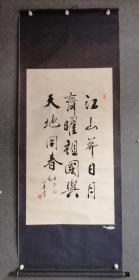 江山并日月
齊曜祖國與
天地同春